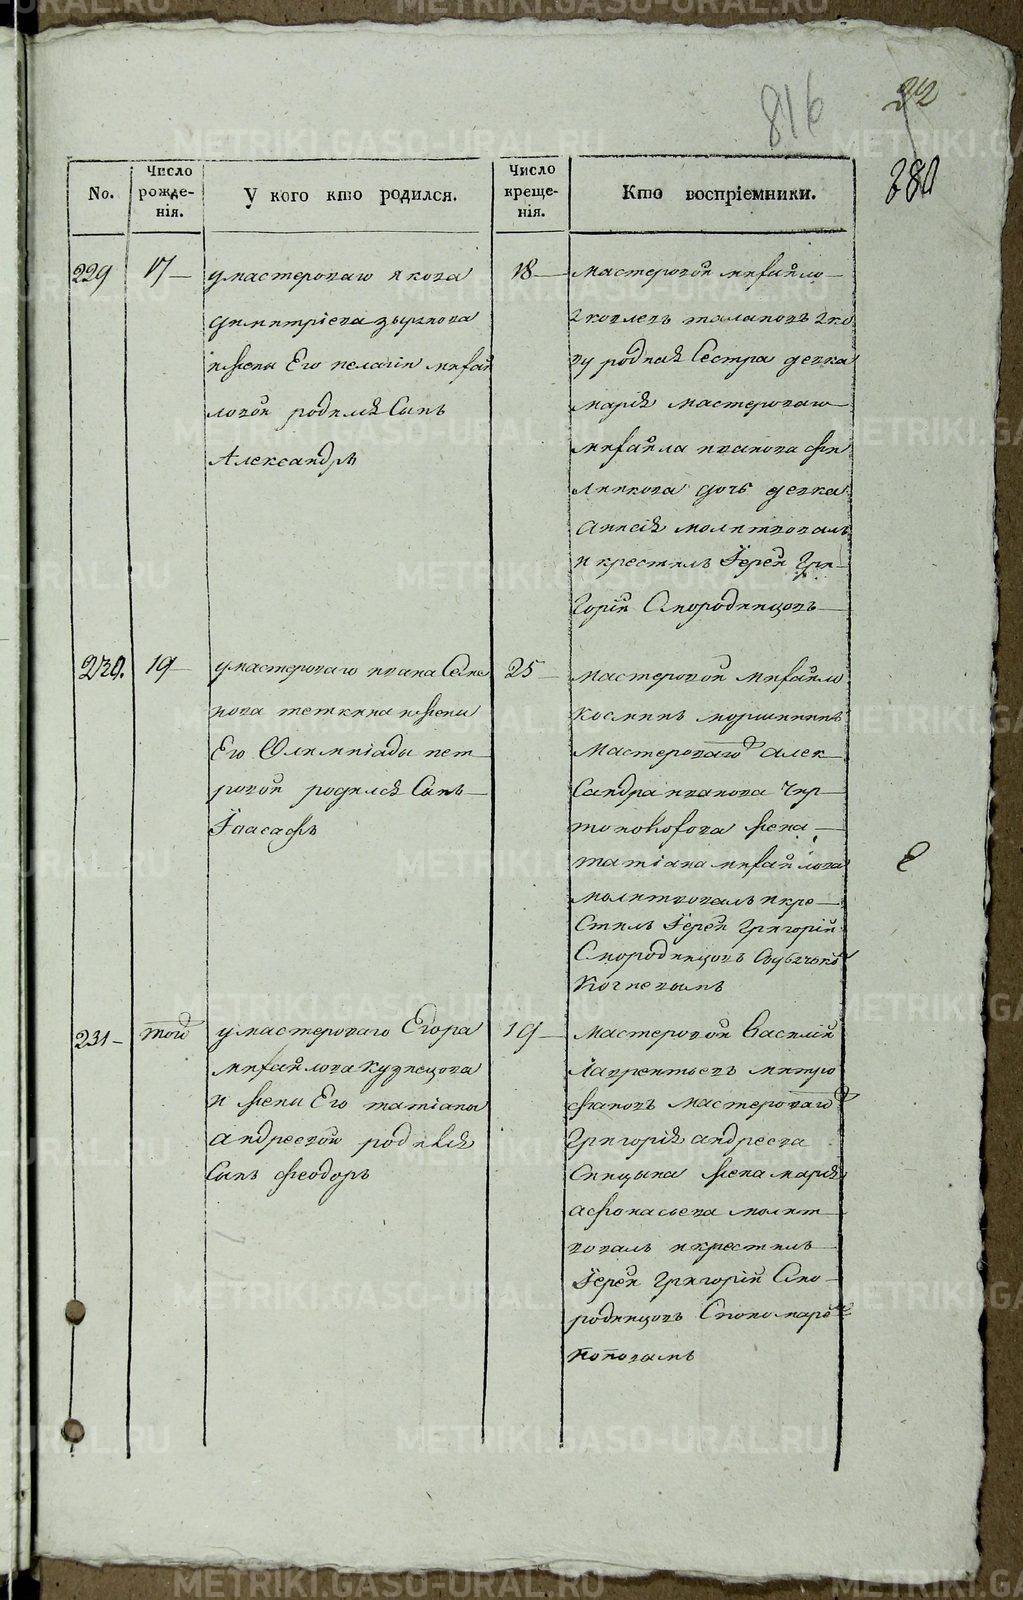 816
22
380
No.
Число рожде-нія.
У кого кто родился.
Число креще-нія.
Кто воспріемники.
229
17
умастероваго якова
димитріева зырянова
ижены Его пелагіи михай
ловой родился Сынъ
Александръ
18
мастеровой михайло
яковлевъ талаповъ
родная Сестра девка
марія мастероваго
михайла иванова фи
липкова дочь девка
анисія молитвовалъ
и крестилъ Іерей Гри
горій Смородинцовъ
230.
19
умастероваго ивана Семе
нова теткина ижены
Его Олимпіады пет
ровой родился Сынъ
Іоасафъ
25
мастеровой михайло
косминъ моршининъ
мастероваго алек
Сандра иванова Чер
тоновогова жена
татіана михайлова
молитвовалъ икре
Стилъ Іерей Григорій
Смородинцовъ
Кочневымъ
231
той
умастероваго Егора
михайлова кузнецова
и жены Его татіаны
андреевой родился
Сынъ феодоръ
19
мастеровой Василій
Лаврентьевъ митро
фановъ мастероваго
Григорія андреева
Спицына жена марія
афонасьева молит
вовалъ икрестилъ
Іерей Григорій Смо
родинцовъ Спономаремъ
поповымъ
METRIKI.GASO-URAL.RU